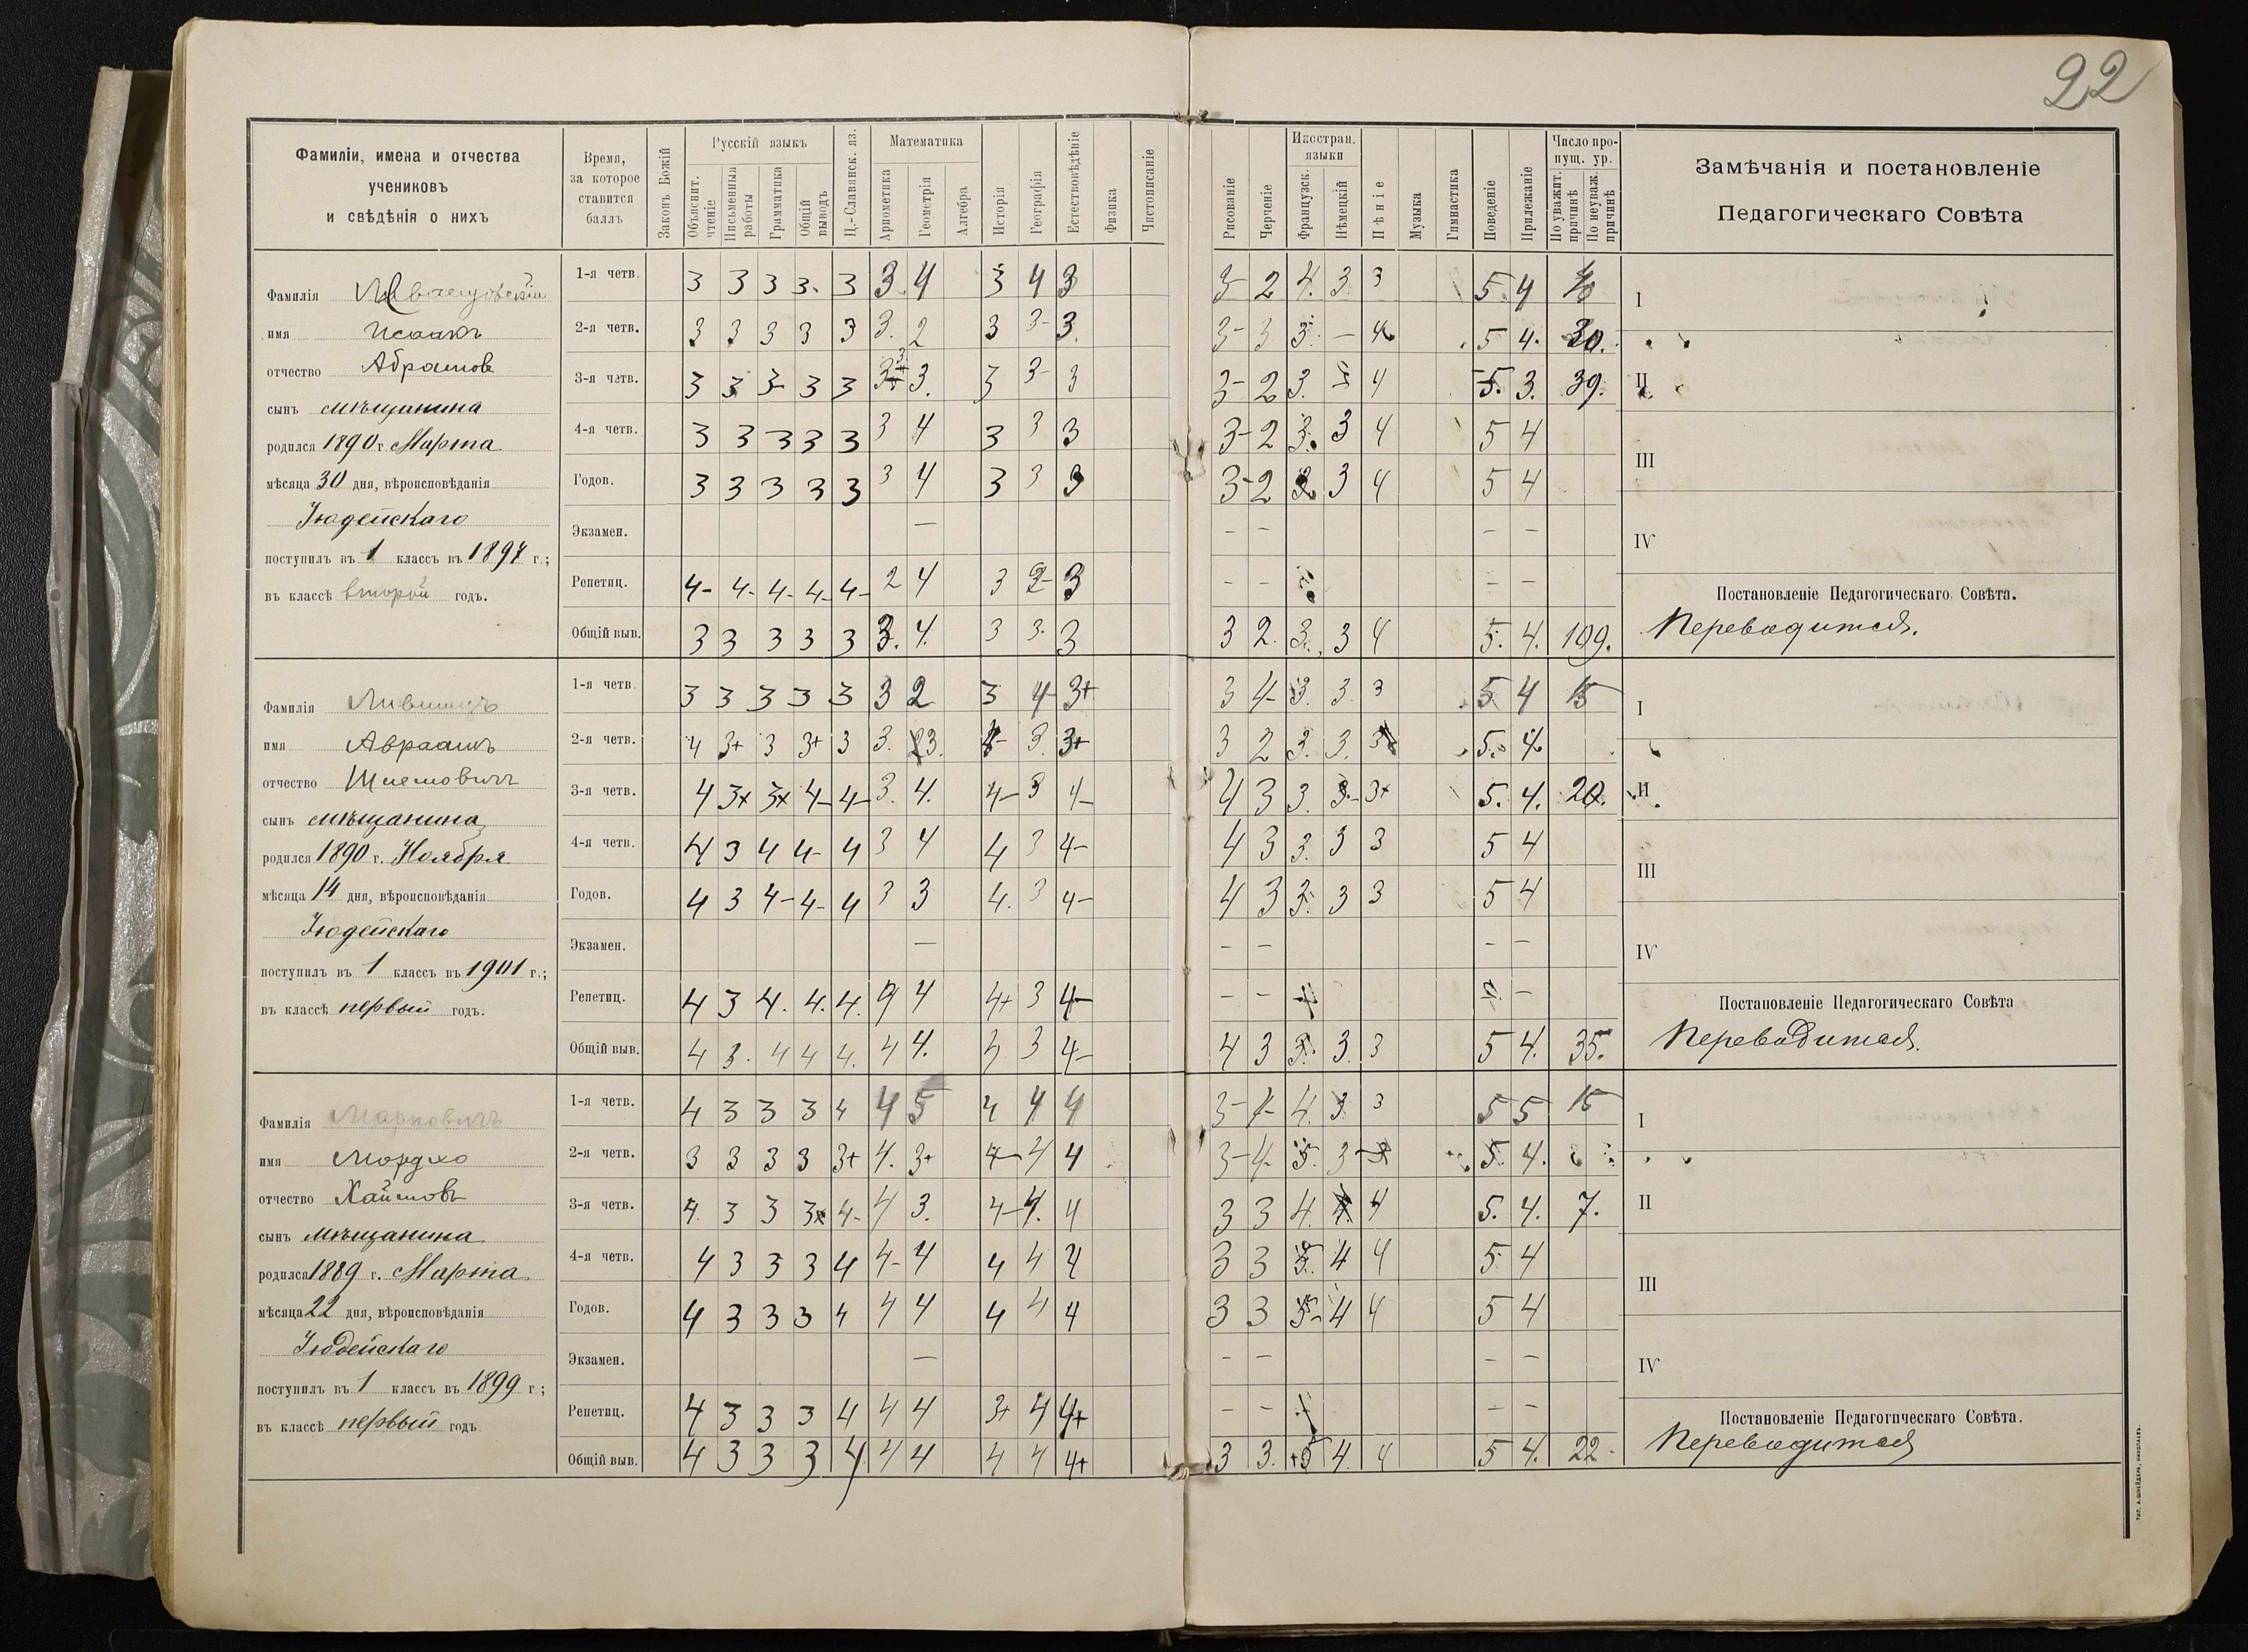 22
Фамиліи, имена и отчества
учениковъ
и свѣдѣнія о нихъ
Время,
за которое
ставится
баллъ
Законъ Божій
Русскій языкъ
Объяснит. чтеніе
Письменныя работы
Грамматика
Общій выводъ
Ц.-Славянск. яз.
Математика
Ариөметика
Геометрія
Алгебра
Исторія
Географія
Естествовѣдѣніе
Физика
Чистописаніе
Рисованіе
Черченіе
Иностран. языки
Французск.
Нѣмецкій
Пѣніе
Музыка
Гимнастика
Поведеніе
Прилежаніе
Число пропущ. ур.
По уважит. причинѣ
По неуваж. причинѣ
Замѣчанія и постановленіе
Педагогическаго Совѣта
Фамилія
имя Исаакъ
отчество Абрамовъ
сынъ мѣщанина
родился 1890 г. Марта
мѣсяца 30 дня, вѣроисповѣданія
Іюдейскаго
поступилъ въ 1 классъ въ 1897 г.;
въ классѣ второй годъ.
1-я четв. 3 3 3 3. 3 3. 4 3 4 3 3- 2 4. 3. 3 5. 4
2-я четв. 3 3 3 3 3 3. 2 3 3- 3. 3- 3 3. — 5 4. 30.
3-я четв. 3 3 3- 3 3 3. 3 3- 3 3- 2 3. 4 5. 3. 39.
4-я четв. 3 3 3 3 3 3 4 3 3 3 3- 2 3. 3 4 5 4
Годов. 3 3 3 3 3 3 4 3 3 3 3- 2 3. 3 4 5 4
Экзамен. — — — — —
Репетиц. 4- 4- 4- 4- 4- 2 4 3 3- 3 — — — —
Общій выв. 3 3 3 3 3 3. 4. 3 3. 3 3 2. 3. 3 4 5. 4. 109.
I
II
III
IV
Постановленіе Педагогическаго Совѣта.
Переводится.
Фамилія Лившицъ
имя Авраамъ
отчество Шлемовичъ
сынъ мѣщанина
родился 1890 г. Ноября
мѣсяца 14 дня, вѣроисповѣданія
Іюдейскаго
поступилъ въ 1 классъ въ 1901 г.;
въ классѣ первый годъ.
1-я четв. 3 3 3 3 3 3 2 3 4- 3+ 3 4- 3. 3. 3 5 4 15
2-я четв. 4 3+ 3 3+ 3 3. 3. 3. 3+ 3 2 3. 3. 5. 4.
3-я четв. 4 3+ 3+ 4- 4- 3. 4. 4- 3 4- 4 3 3. 3.- 3+ 5. 4. 20.
4-я четв. 4 3 4 4- 4 3 4 4 3 4- 4 3 3. 3 3 5 4
Годов. 4 3 4- 4- 4 3 3 4. 3 4- 4 3 3. 3 3 5 4
Экзамен. — — — — —
Репетиц. 4 3 4. 4. 4. 4 4+ 3 4- — — —
Общій выв. 4 3. 4 4 4. 4 4. 4 3 4- 4 3 3. 3. 3 5 4. 35.
I
II
III
IV
Постановленіе Педагогическаго Совѣта
Переводится.
Фамилія Марковичъ
имя Мордхо
отчество Хаимовъ
сынъ мѣщанина
родился 1889 г. Марта
мѣсяца 22 дня, вѣроисповѣданія
Іюдейскаго
поступилъ въ 1 классъ въ 1899 г;
въ классѣ первый годъ
1-я четв. 4 3 3 3 4 4 5 4 4 4 3- 4- 4. 3. 3 5 5 15
2-я четв. 3 3 3 3 3+ 4. 3+ 4- 4 4 3- 4- 5. 3- 5. 4.
3-я четв. 4. 3 3 4- 4 3. 4- 4. 4 3 3 4. 4 5. 4. 7.
4-я четв. 4 3 3 3 4 4- 4 4 4 4 3 3 5. 4 4 5 4
Годов. 4 3 3 3 4 4 4 4 4 4 3 3 5- 4 4 5 4
Экзамен. — — — — —
Репетиц. 4 3 3 3 4 4 4 3+ 4 4+ — — — —
Общій выв. 4 3 3 3 4 4 4 4 4 4+ 3 3. 5 4. 4 5 4. 22.
I
II
III
IV
Постановленіе Педагогическаго Совѣта.
Переводится
Тип. А. Шнейдера, Николаевъ.